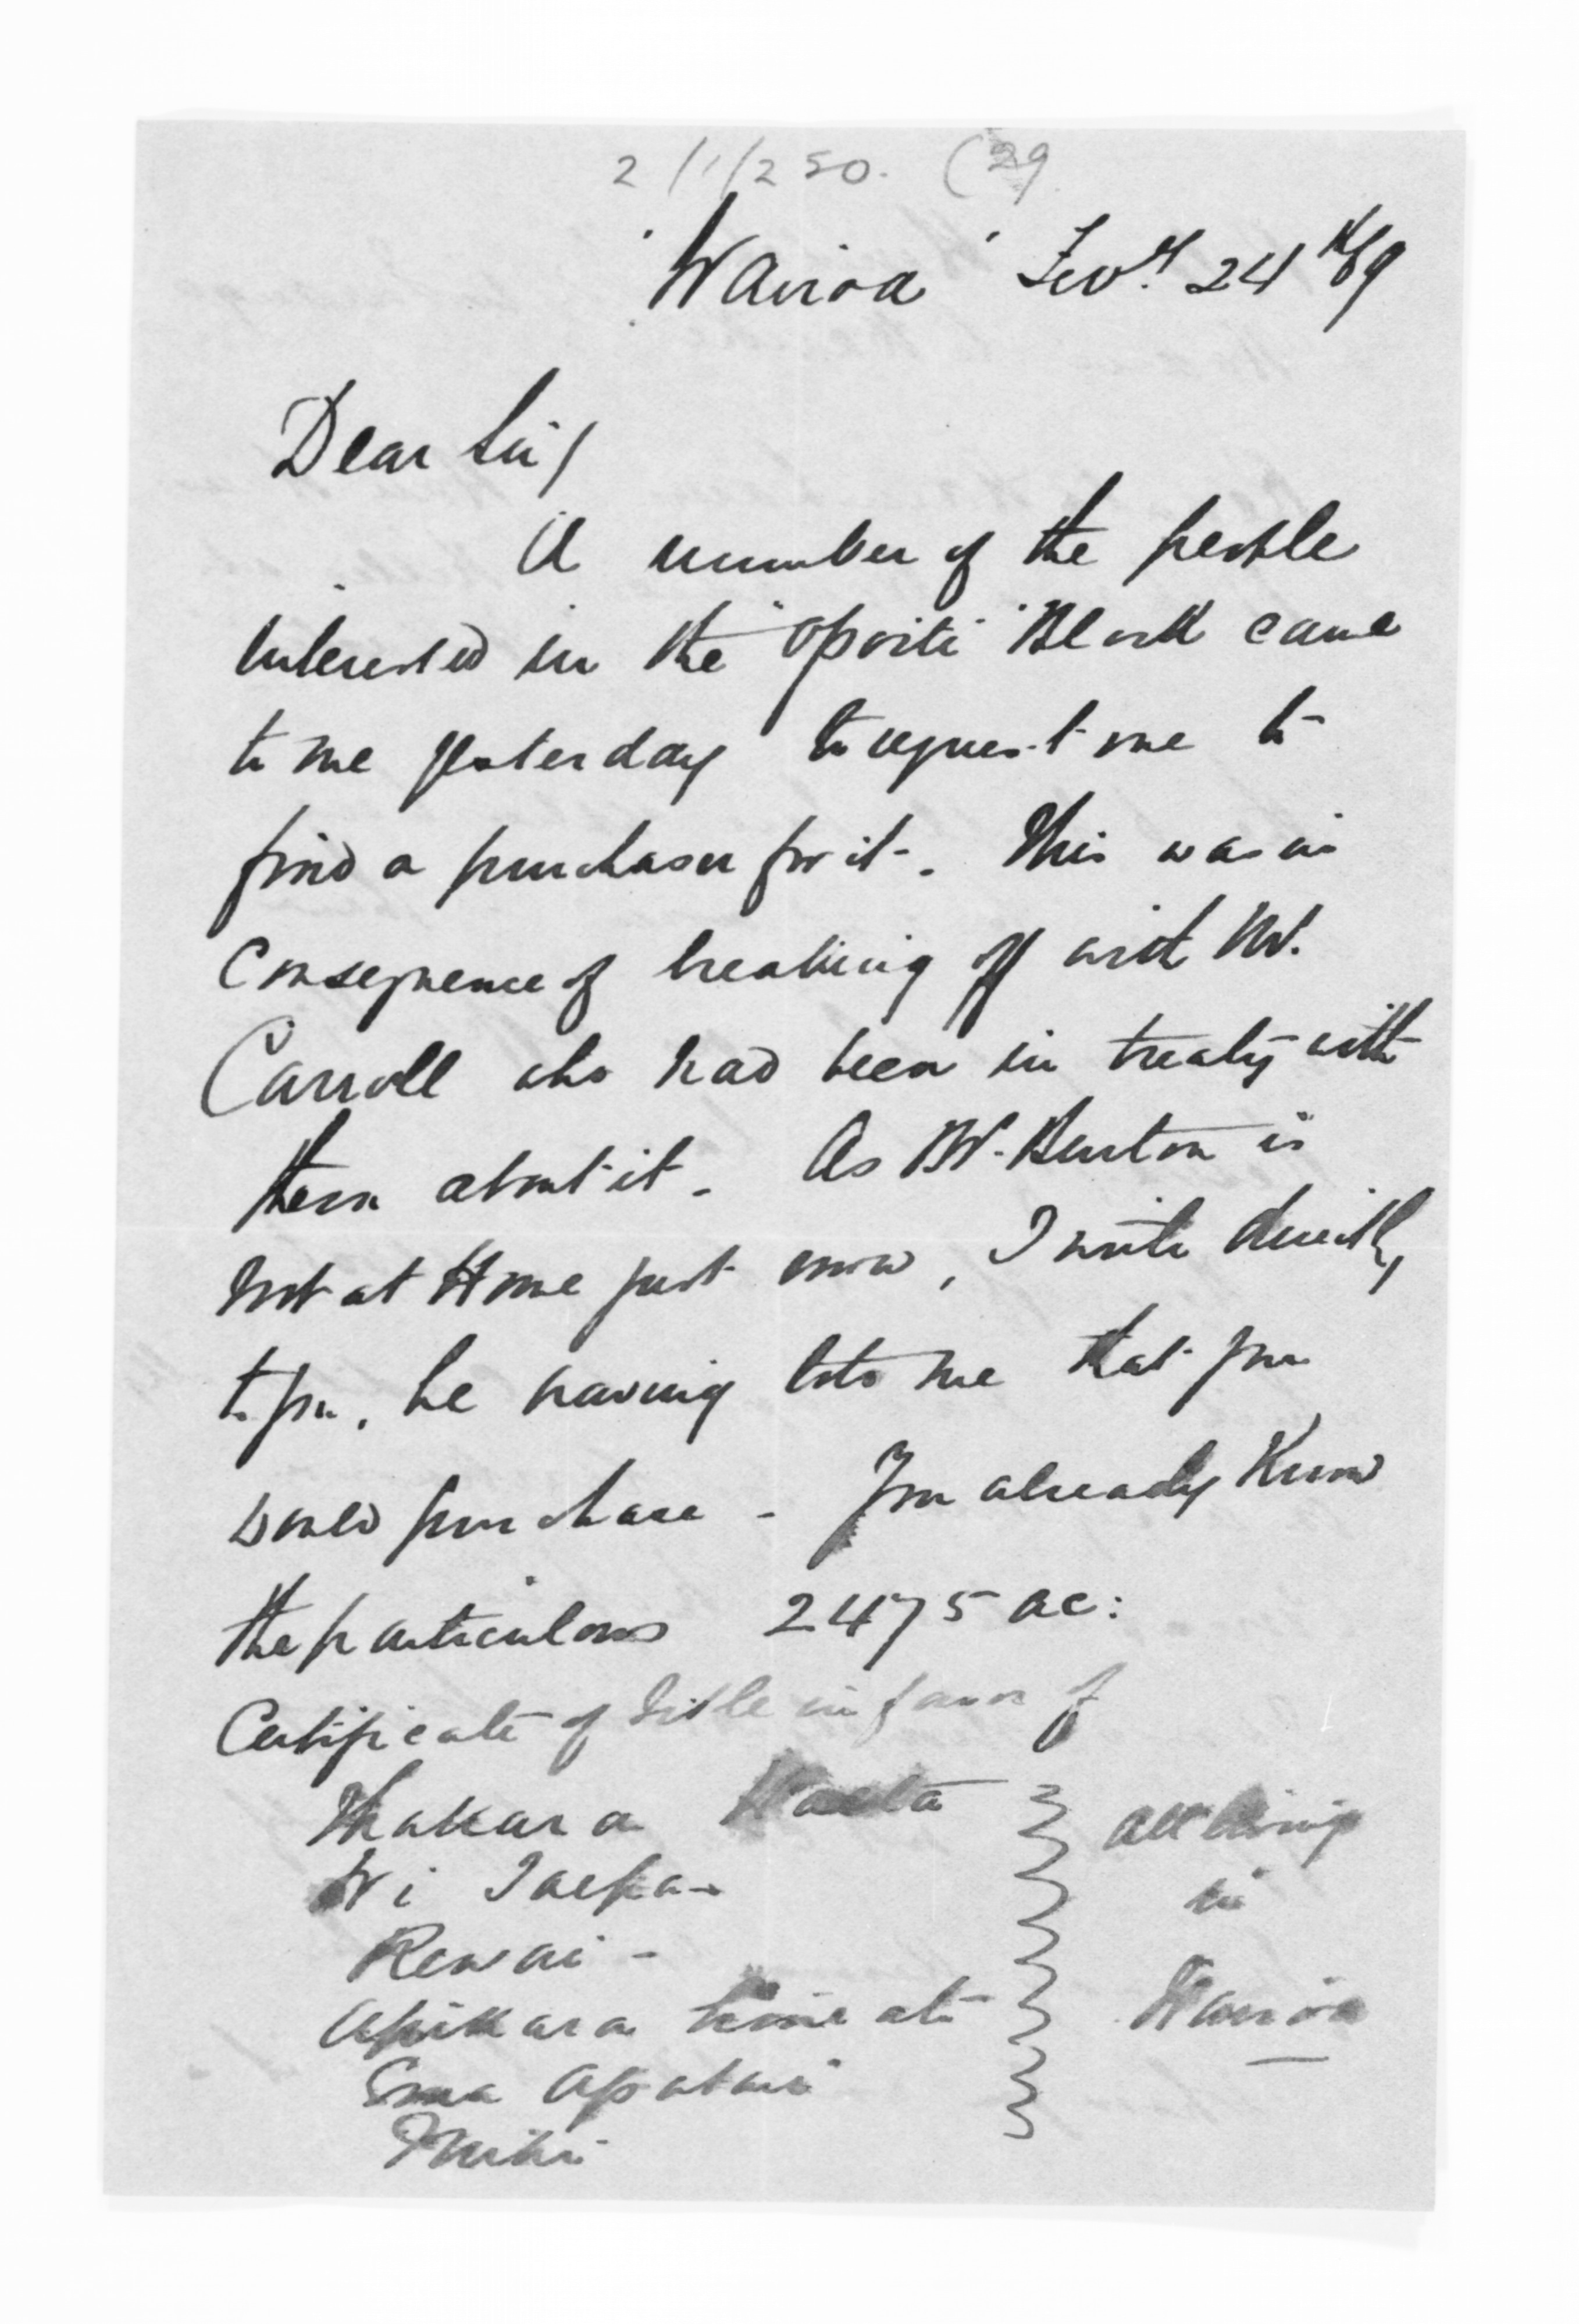 2/1/250. (29
"Wairoa" Feby. 24th/69
Dear Sir/
A number of the people
interested in the "Opoiti" Block came
to me yesterday to request me to
find a purchaser for it. This was in
Consequence of breaking off with Mr.
Carroll who had been in treaty with
them about it. As Mr. Burton is
not at Home just now, I write directly
to you, he having told me that you
would purchase - You already Know
the particulars 2475 ac:
Certificate of Title in favor of
Maakara
Wi Taepa -
Rewai -
Apikara
Ema Apatari
Mihi
all living
in
Wairoa